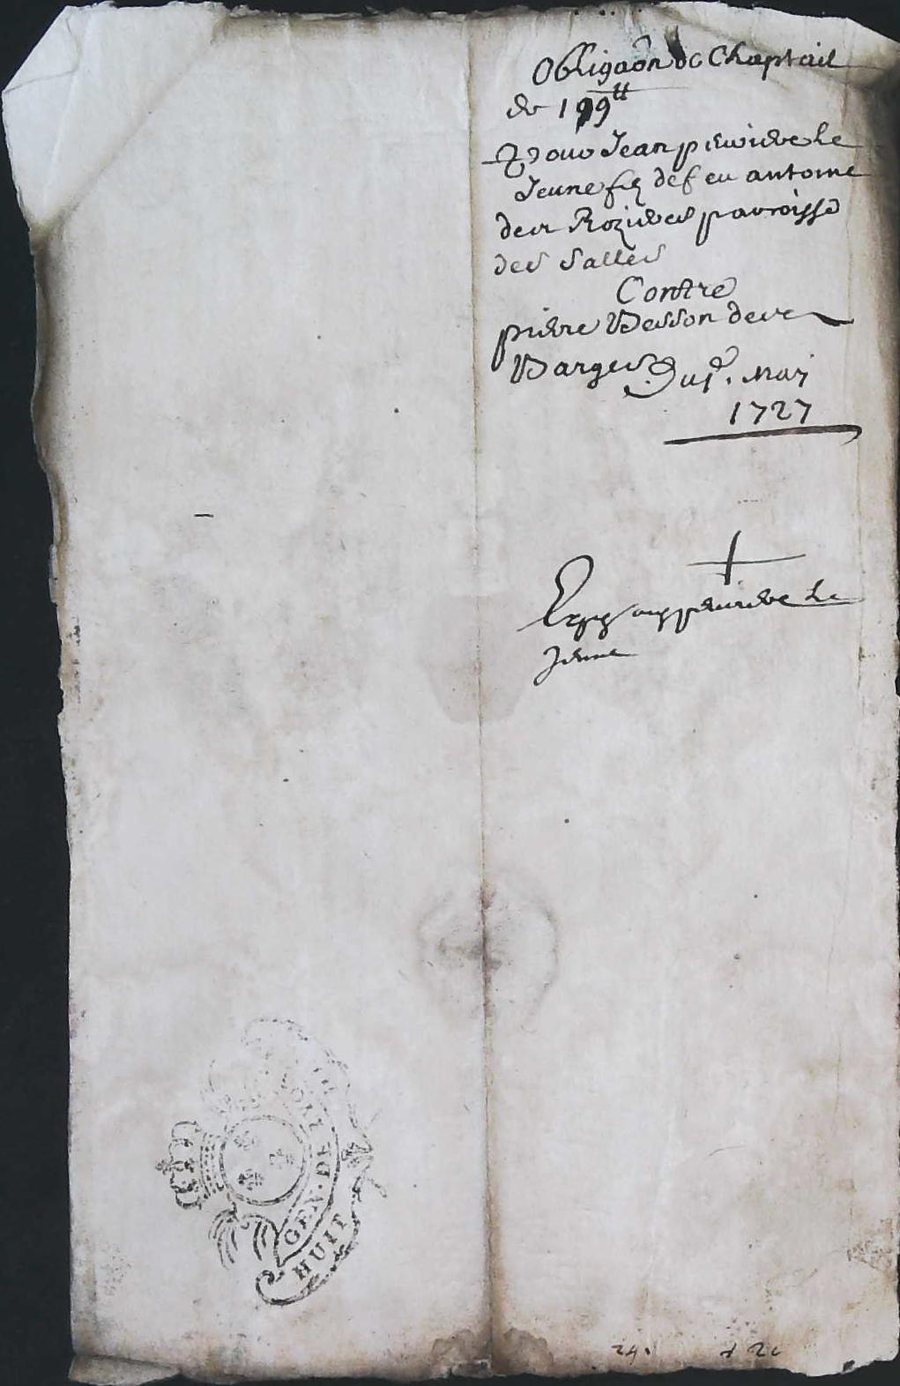 Obligaõn de Chaptail
de 199ᵗᵗ
Pour Jean perrieve le
Jeune fiz de feu antoine
des Rozieres parroisse
des Salles
Contre
pierre Besson de
Barges Du 1ᵉ. May
1727
le
Jeune
GEN. DE
HUIT
24.